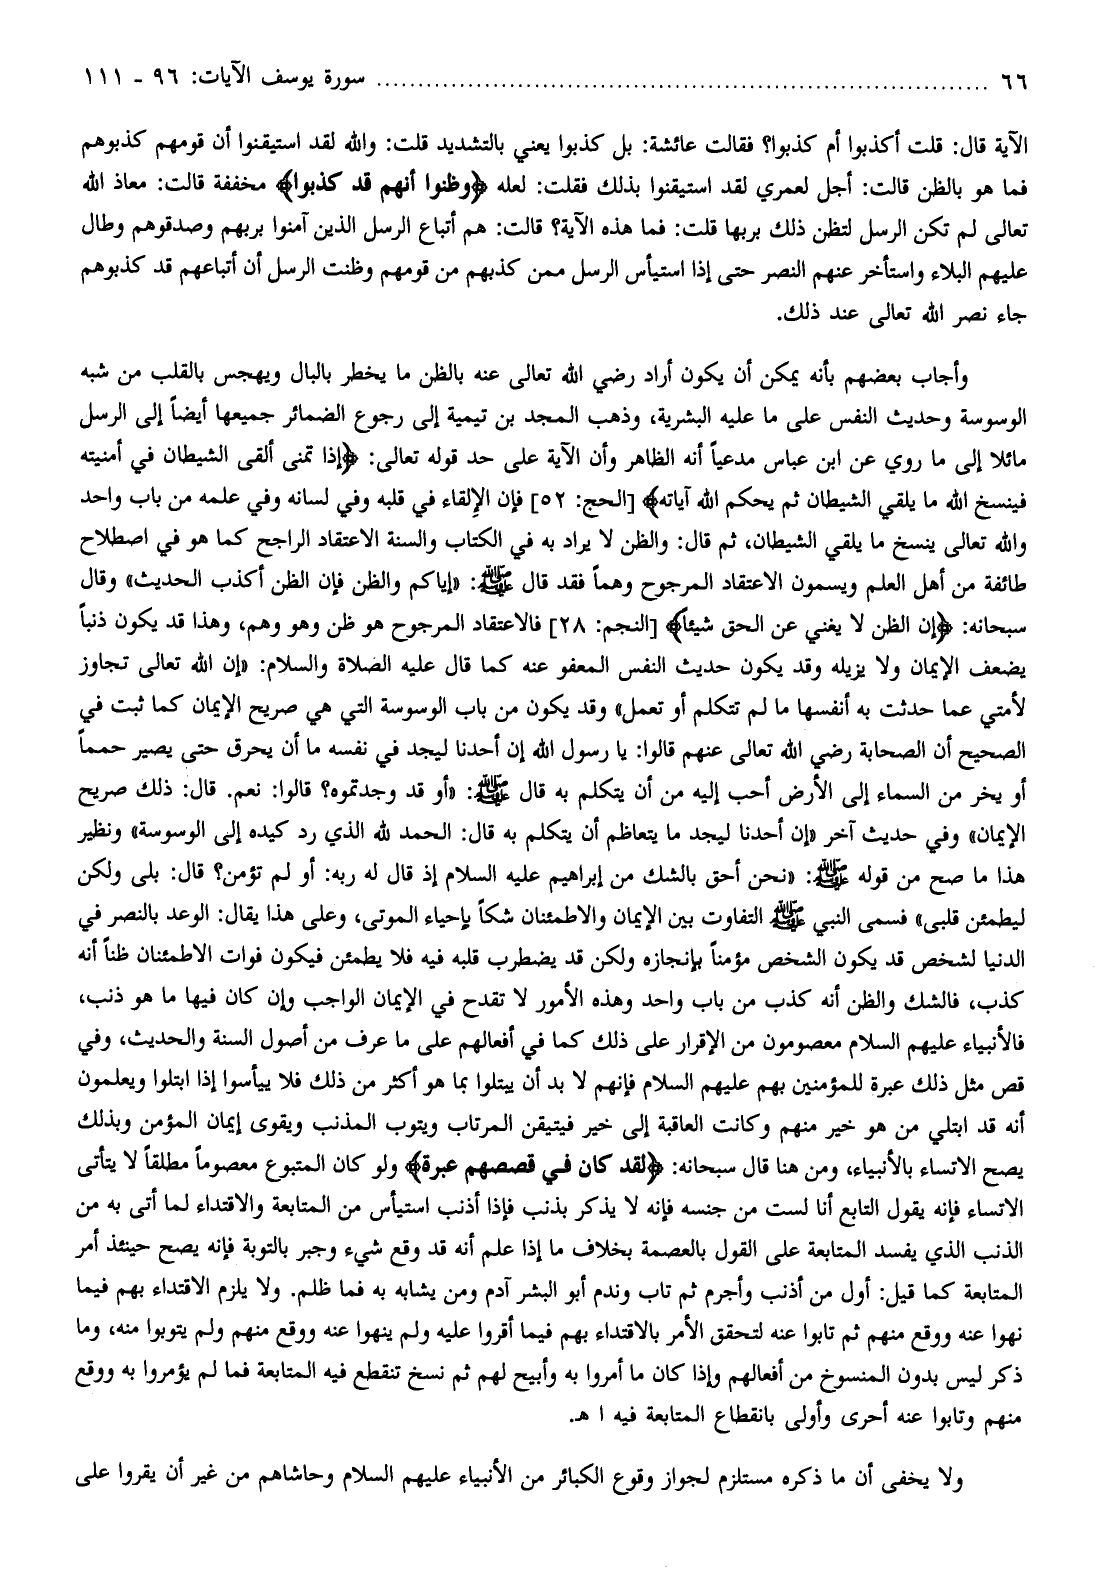 ٦٦ ........ سورة يوسف الآيات: ٩٦ - ١١١
الآية قال: قلت أكذبوا أم كذبوا؟ فقالت عائشة: بل كذبوا يعني بالتشديد قلت: والله لقد استيقنوا أن قومهم كذبوهم
فما هو بالظن قالت: أجل لعمري لقد استيقنوا بذلك فقلت: لعله ﴿وظنوا أنهم قد كذبوا﴾ مخففة قالت: معاذ الله
تعالى لم تكن الرسل لتظن ذلك بربها قلت: فما هذه الآية؟ قالت: هم أتباع الرسل الذين آمنوا بربهم وصدقوهم وطال
عليهم البلاء واستأخر عنهم النصر حتى إذا استيأس الرسل ممن كذبهم من قومهم وظنت الرسل أن أتباعهم قد كذبوهم
جاء نصر الله تعالى عند ذلك.
وأجاب بعضهم بأنه يمكن أن يكون أراد رضي الله تعالى عنه بالظن ما يخطر بالبال ويهجس بالقلب من شبه
الوسوسة وحديث النفس على ما عليه البشرية، وذهب المجد بن تيمية إلى رجوع الضمائر جميعها أيضاً إلى الرسل
مائلا إلى ما روي عن ابن عباس مدعياً أنه الظاهر وأن الآية على حد قوله تعالى: ﴿إذا تمنى ألقى الشيطان في أمنيته
فينسخ الله ما يلقي الشيطان ثم يحكم الله آياته﴾ [الحج: ٥٢] فإن الإلقاء في قلبه وفي لسانه وفي علمه من باب واحد
والله تعالى ينسخ ما يلقي الشيطان، ثم قال: والظن لا يراد به في الكتاب والسنة الاعتقاد الراجح كما هو في اصطلاح
طائفة من أهل العلم ويسمون الاعتقاد المرجوح وهماً فقد قال ﷺ: «إياكم والظن فإن الظن أكذب الحديث» وقال
سبحانه: ﴿إن الظن لا يغني عن الحق شيئاً﴾ [النجم: ٢٨] فالاعتقاد المرجوح هو ظن وهو وهم، وهذا قد يكون ذنباً
يضعف الإيمان ولا يزيله وقد يكون حديث النفس المعفو عنه كما قال عليه الصلاة والسلام: «إن الله تعالى تجاوز
لأمتي عما حدثت به أنفسها ما لم تتكلم أو تعمل» وقد يكون من باب الوسوسة التي هي صريح الإيمان كما ثبت في
الصحيح أن الصحابة رضي الله تعالى عنهم قالوا: يا رسول الله إن أحدنا ليجد في نفسه ما أن يحرق حتى يصير حمماً
أو يخر من السماء إلى الأرض أحب إليه من أن يتكلم به قال ﷺ: «أو قد وجدتموه؟ قالوا: نعم. قال: ذلك صريح
الإيمان» وفي حديث آخر «إن أحدنا ليجد ما يتعاظم أن يتكلم به قال: الحمد لله الذي رد كيده إلى الوسوسة» ونظير
هذا ما صح من قوله ﷺ: «نحن أحق بالشك من إبراهيم عليه السلام إذ قال له ربه: أو لم تؤمن؟ قال: بلى ولكن
ليطمئن قلبي» فسمى النبي ﷺ التفاوت بين الإيمان والاطمئنان شكاً بإحياء الموتى، وعلى هذا يقال: الوعد بالنصر في
الدنيا لشخص قد يكون الشخص مؤمناً بإنجازه ولكن قد يضطرب قلبه فيه فلا يطمئن فيكون فوات الاطمئنان ظناً أنه
كذب، فالشك والظن أنه كذب من باب واحد وهذه الأمور لا تقدح في الإيمان الواجب وإن كان فيها ما هو ذنب،
فالأنبياء عليهم السلام معصومون من الإقرار على ذلك كما في أفعالهم على ما عرف من أصول السنة والحديث، وفي
قص مثل ذلك عبرة للمؤمنين بهم عليهم السلام فإنهم لا بد أن يبتلوا بما هو أكثر من ذلك فلا ييأسوا إذا ابتلوا ويعلمون
أنه قد ابتلي من هو خير منهم وكانت العاقبة إلى خير فيتيقن المرتاب ويتوب المذنب ويقوى إيمان المؤمن وبذلك
يصح الاتساء بالأنبياء، ومن هنا قال سبحانه: ﴿لقد كان في قصصهم عبرة﴾ ولو كان المتبوع معصوماً مطلقاً لا يتأتى
الاتساء فإنه يقول التابع أنا لست من جنسه فإنه لا يذكر بذنب فإذا أذنب استيأس من المتابعة والاقتداء لما أتى به من
الذنب الذي يفسد المتابعة على القول بالعصمة بخلاف ما إذا علم أنه قد وقع شيء وجبر بالتوبة فإنه يصح حينئذ أمر
المتابعة كما قيل: أول من أذنب وأجرم ثم تاب وندم أبو البشر آدم ومن يشابه به فما ظلم. ولا يلزم الاقتداء بهم فيما
نهوا عنه ووقع منهم ثم تابوا عنه لتحقق الأمر بالاقتداء بهم فيما أقروا عليه ولم ينهوا عنه ووقع منهم ولم يتوبوا منه، وما
ذكر ليس بدون المنسوخ من أفعالهم وإذا كان ما أمروا به وأبيح لهم ثم نسخ تنقطع فيه المتابعة فما لم يؤمروا به ووقع
منهم وتابوا عنه أحرى وأولى بانقطاع المتابعة فيه ا هـ.
ولا يخفى أن ما ذكره مستلزم لجواز وقوع الكبائر من الأنبياء عليهم السلام وحاشاهم من غير أن يقروا على